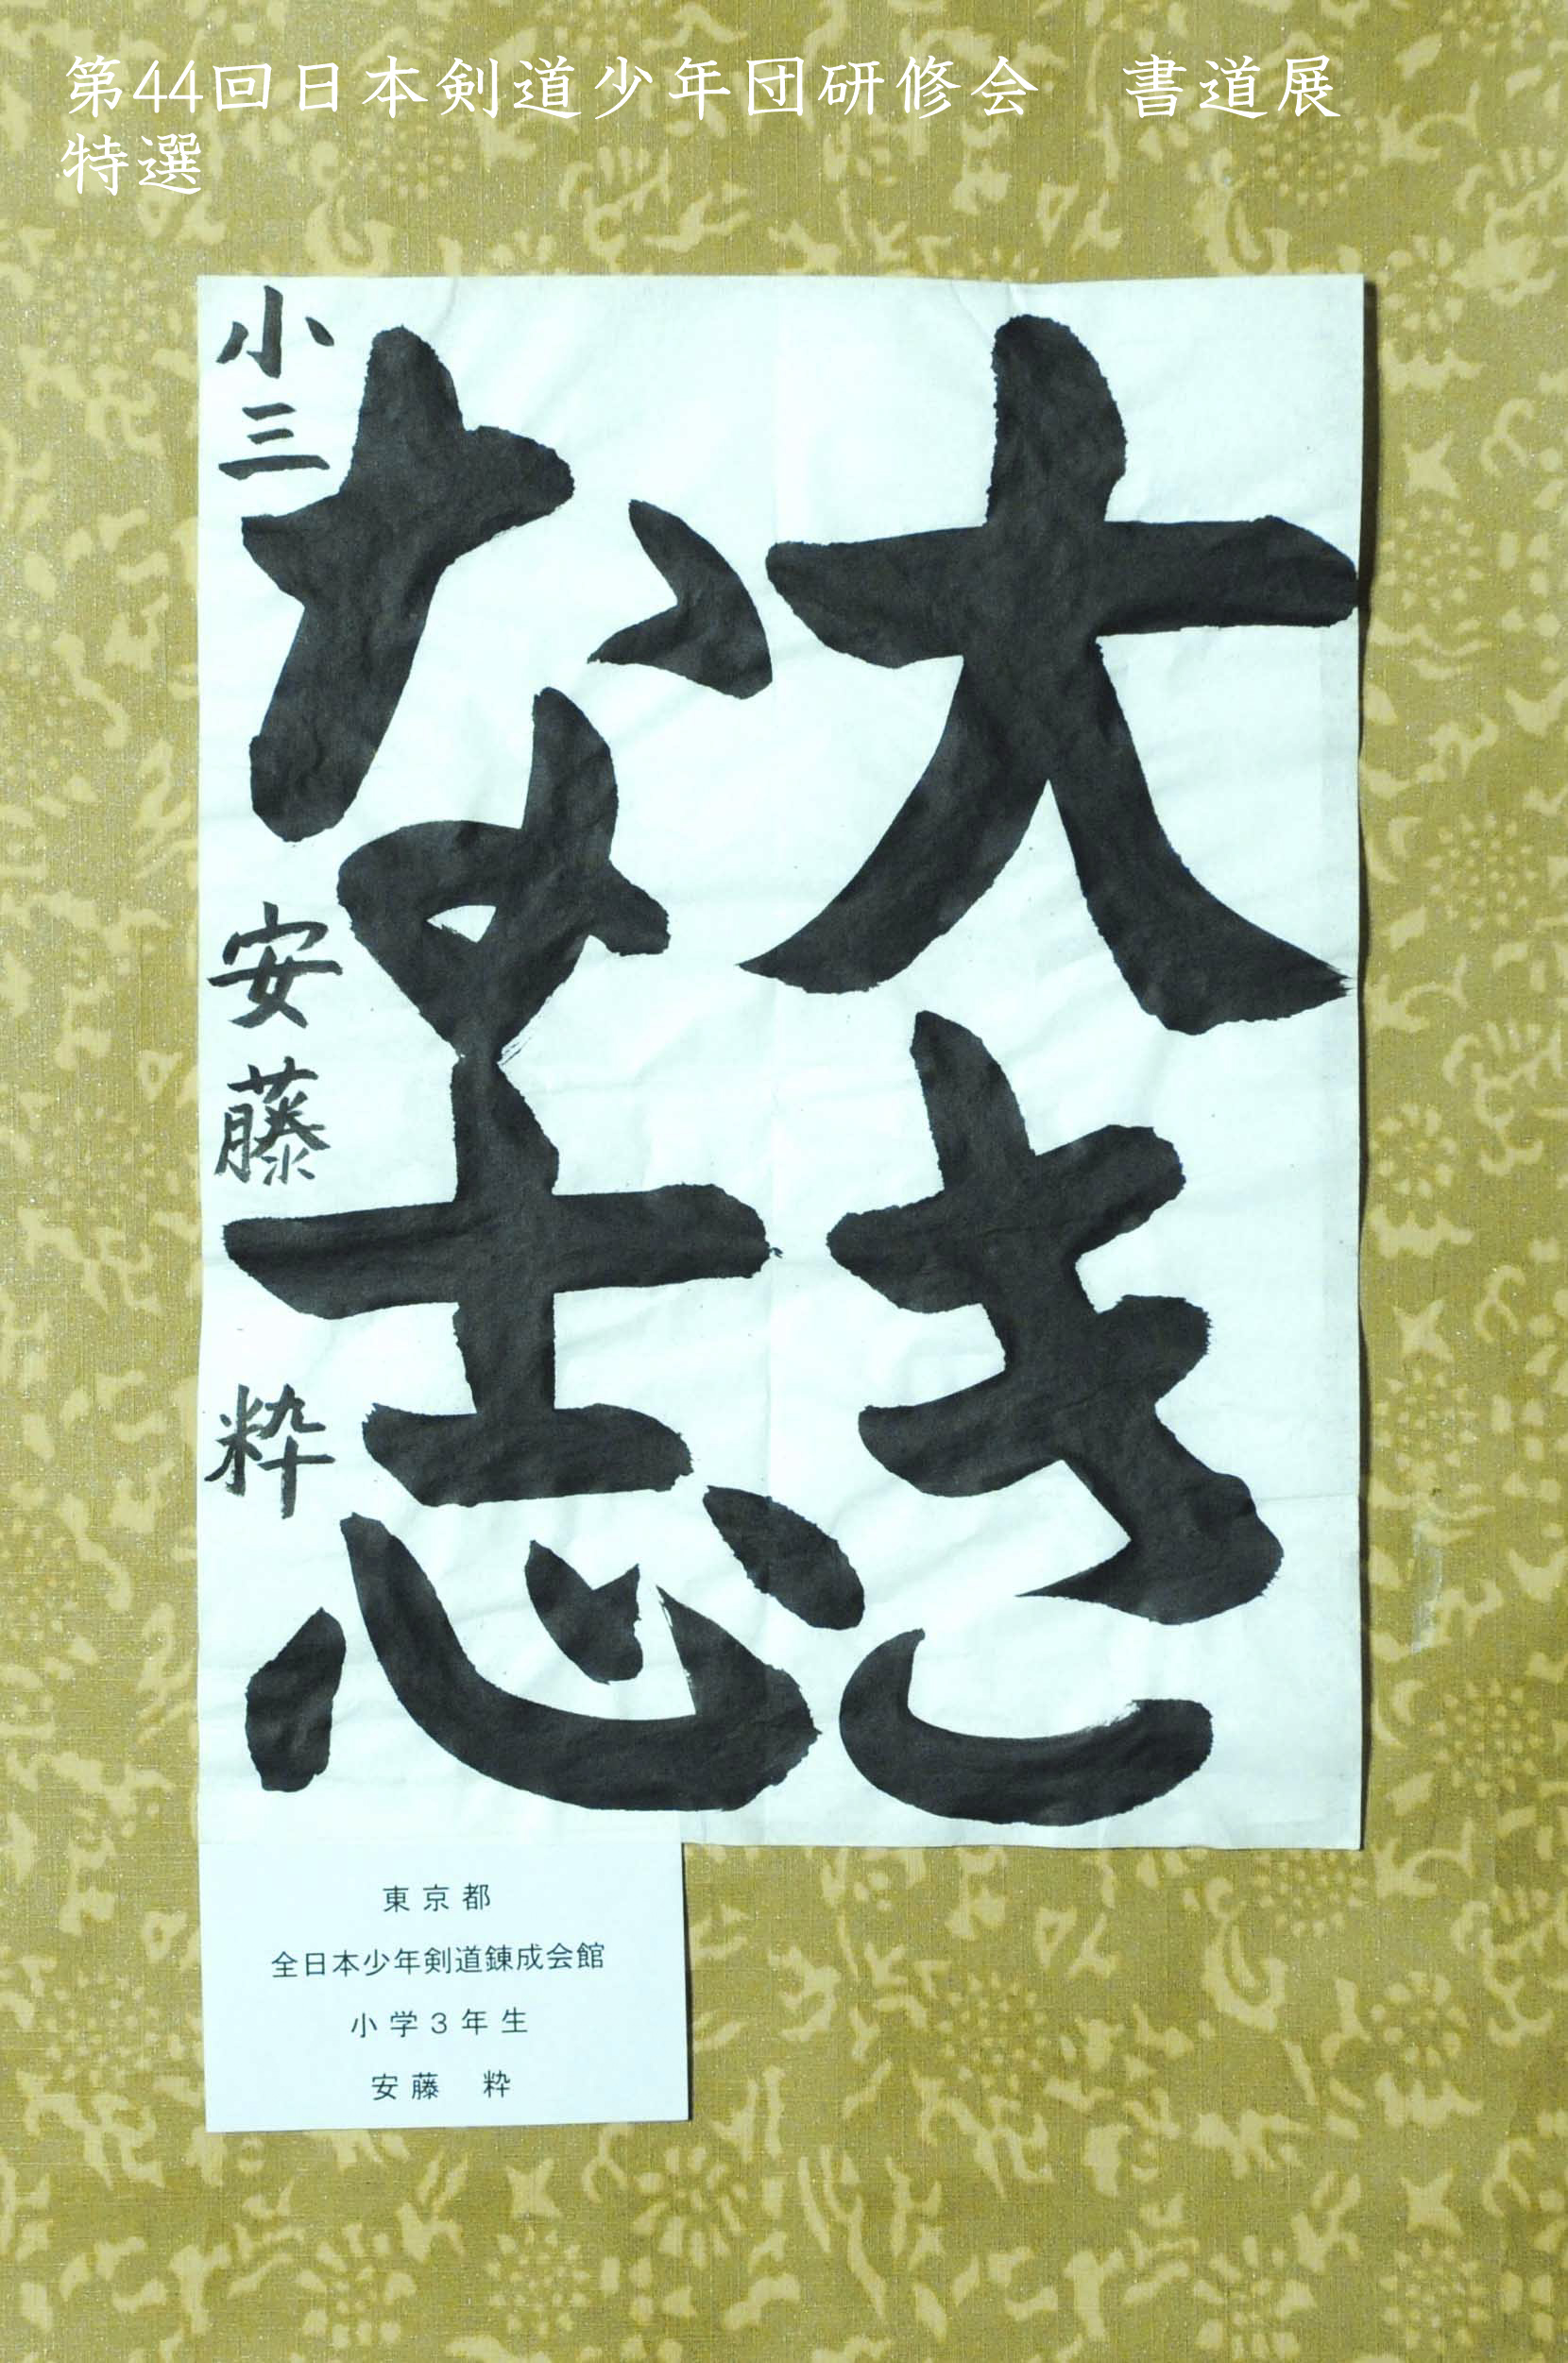 第44回日本剣道少年団研修会　書道展
特選
大き
な志
小三　安藤　粋
東京都
全日本少年剣道錬成会館
小学3年生
安藤　粋